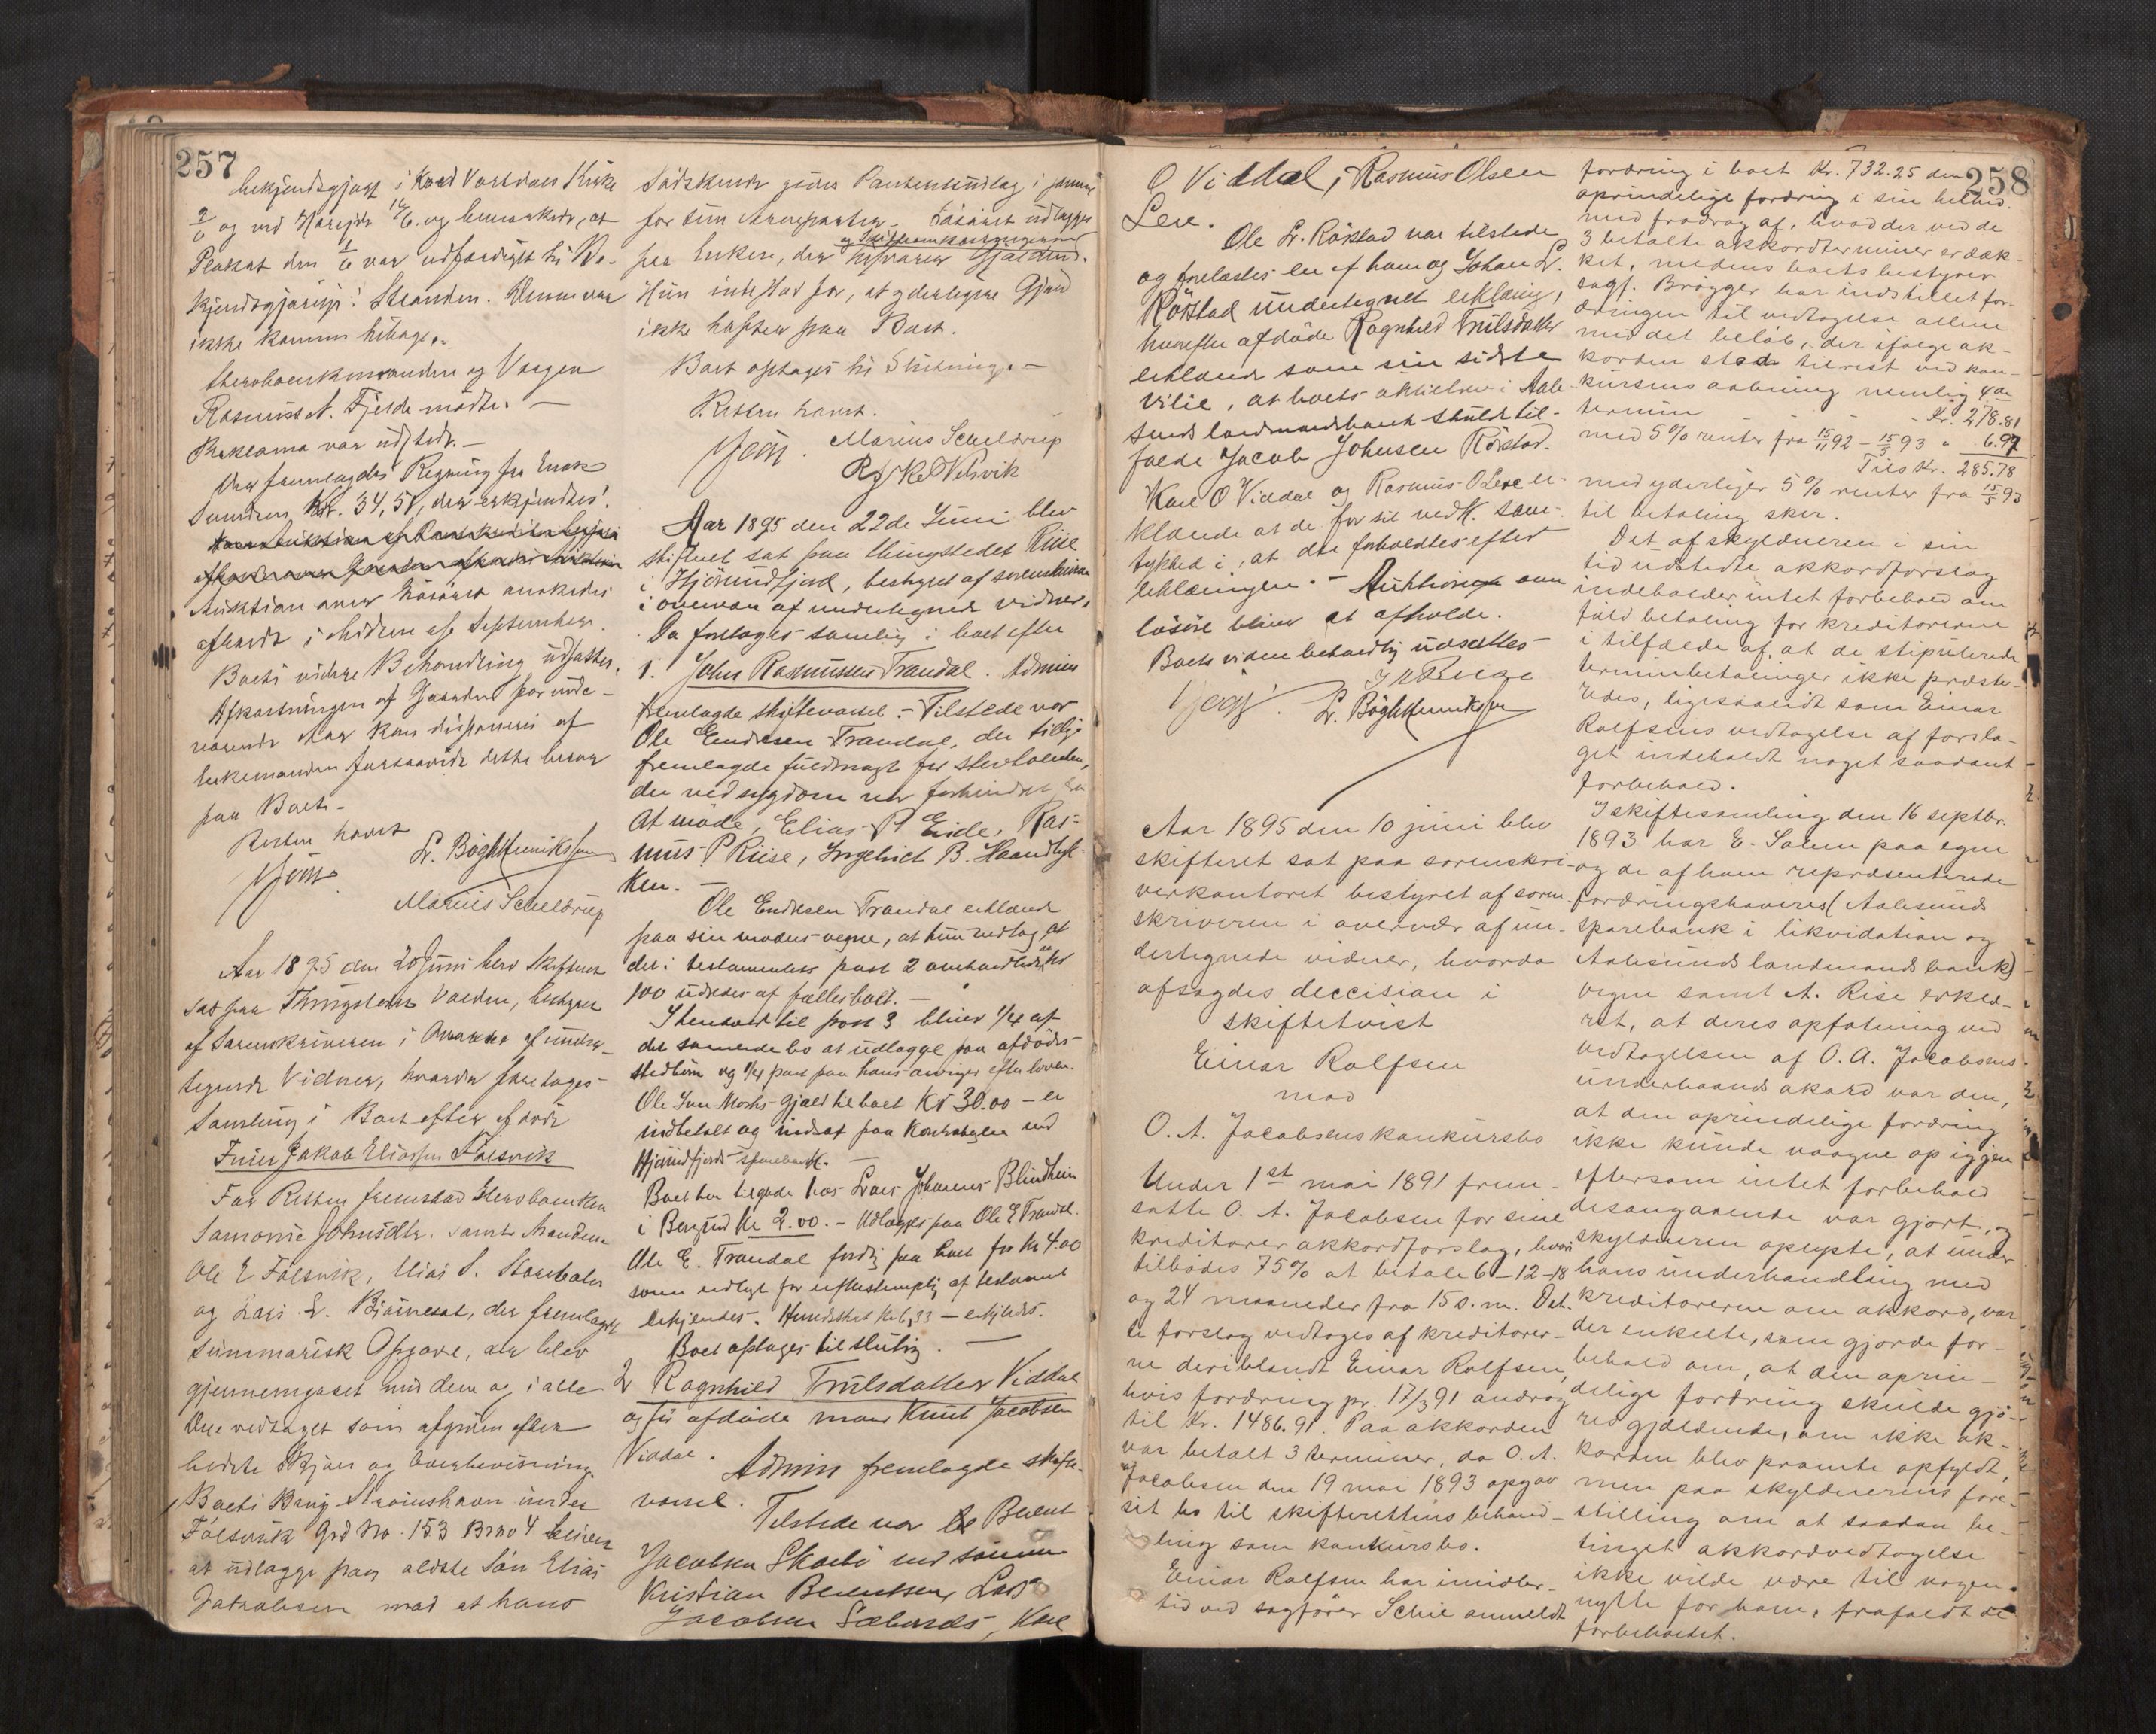 257
bekjendtgjort i Vartdals Kirke
2/6 og ved Hareids 16/6. og bemerkede, at
Plakat den 1/6 var udfærdiget til Be-
kjendtgjørelse i Stranden. Denne var
ikke kommen tilbage.
Stervboenkemanden ogVærgen
Rasmus A. Fjelde mødte. —
Proklama var udstedt. —
Der fremlagdes Regning fra Enok
Kr. 34,51, der erkjendtes.
Auktion over Løsøret ønskedes
afholdt i Midten af September.
Boets videre Behandling udsattes.
Afkastningen af Gaarden for inde-
værende Aar kan disponeres af
Enkemanden forsaavidt dette beror
paa Boet. —
Retten hævet
L. Bøgh Henrikssen
Marius Scheldrup
Aar 1895 den 20 Juni blev Skifteret
sat paa Thingstedet Volden, bestyret
af Sorenskriveren i Overvær af under-
tegnede Vidner, hvorda foretoges
Samling i Boet efter afdøde
Jakob Eliassen Følsvik
For Retten fremstod Stervboenken
Johnsdtr. samt Mændene
Ole E Følsvik, Elias S.
og Lars L. Bjørneset, der fremlagde
summarisk Opgave, der blev
gjennemgaaet med dem og i alle
Dele vedtaget som afgiven efter
bedste Skjøn og Overbevisning.
Boets Brug Strømshavn under
Følsvik Grd No. 153 Brno 4 bliver
at udlægge paa ældste Søn Elias
Jakobsen mod at hans
Sødskende gives Panteudlæg i samme
for sin Arvepart. Løsøret udlægges
paa Enken, der Gjælden.
Hun indestod for, at yderligere Gjæld
ikke hæfter paa Boet.
Boet optages til Slutning. —
Retten hævet.
Marius Scheldrup
Aar 1895 den 22de Juni blev
skifteret sat paa thingstedet Riise
i Hjørundfjord, bestyret af sorenskriveren
i overvær af undertegnede vidner.
Da foretoges samling i boet efter
1. John Rasmussen Trandal. Admin
fremlagde skiftevarsel. — Tilstede var
Ole Endresen Trandal, der tillige
fremlagde fuldmagt for stervboenken,
der ved sygdom var forhindret fra
at møde, Elias P Eide, Ras-
mus P Riise, Ingebrigt B. Haandlyk-
ken. —
Ole Endresen Trandal erklærede
paa sin moders vegne, at hun vedtog at
det i testamentets post 2 omhandlede kr
100 udredes af fællesboet. —
I henhold til post 3 bliver 1/4 af
det samlede bo at udlægge paa afdødes
stedbørn og 1/4 part paa hans arvinger efter loven.
Ole Iver Mosks gjæld til boet Kr 30.00 — er
indbetalt og indsat paa Kontrabog ved
Hjørundfjords sparebank. —
Boet har tilgode hos Lars Johannes Blindheim
i Borgund Kr 2.00. — Udlægges paa Ole E Trandal.
Ole E. Trandal fordrg paa boet for Kr 4.00
som udlagt for efterstempling af testament
erkjendes. Kr 6,33 — erkjendes.
Boet optages til slutning. —
2 Ragnhild Trulsdatter Viddal
og før afdøde mand Knut Jacobsen
Viddal. Admin fremlagde skifte-
varsel.
Tilstede var Berent
Jacobsen Skarbø med sønnen
Kristian Berentsen, Lars
Jacobsen Sæbønæs, Karl
258
O Viddal, Rasmus Olsen
Leve.
Ole L. Rørstad var tilstede
og fremlagdes en af ham og Johan L.
Rørstad undertegnet erklæring,
hvorefter afdøde Ragnhild Trulsdatter
erklærede som sin sidste
vilie, at boets aktielse i Aale-
sunds landmandsbank skulde til-
falde Jacob Johnsen Rørstad.
Karl O Viddal og Rasmus O Leve er-
klærede at de for sit vedk. sam-
tykked i, at der forholdtes efter
erklæringen. — Auktion over
løsøre bliver at afholde.
Boets videre behandlg udsattes —
L. Bøgh Henrikssen
Aar 1895 den 10 juni blev
skifteret sat paa sorenskri-
verkontoret bestyret af soren-
skriveren i overvær af un-
dertegnede vidner, hvorda
afsagdes decision i
skiftetvist
Einar Rolfsen
mod
O. A. Jacobsens konkursbo
Under 1st mai 1891 frem-
satte O. A. Jacobsen for sine
kreditorer akkordforslag, hvori
tilbødes 75% at betale 6-12-18
og 24 maaneder fra 15 s. m. Det-
te forslag vedtoges af kreditorer-
ne deriblandt Einar Rolfsen,
hvis fordring pr. 17/3 91 androg
til Kr. 1486.91. Paa akkorden
var betalt 3 terminer, da O. A.
Jacobsen den 19 mai 1893 opgav
sit bo til skifterettens behand-
ling som konkursbo.
Einar Rolfsen har imidler-
tid ved sagfører Schie anmeldt
fordring i boet Kr. 732.25 den
oprindelige fordring i sin helhed
med fradrag af, hvad der ved de
3 betalte akkordterminer er dæk-
ket, medens boets bestyrer
sagf. Brøgger har indstillet for-
dringen til vedtagelse alene
med det beløb, der ifølge ak-
korden stod tilrest ved kon-
kursens aabning nemlig 4de
termin - - - - Kr. 278.81
med 5% renter fra 15/11 92 – 15/5 93 " 6.97
Tils Kr. 285.78
med yderligere 5% renter fra 15/5 93
til betaling sker.
Det af skyldneren i sin
tid udstedte akkordforslag
indeholder intet forbehold om
fuld betaling for kreditorerne
i tilfælde af, at de stipulerede
terminbetalinger ikke præste-
redes, ligesaalidt som Einar
Rolfsens vedtagelse af forsla-
get indeholdt noget saadant
forbehold.
I skiftesamling den 16 septbr.
1893 har E. Saum paa egne
og de af ham repræsenterede
fordringshaveres (Aalesunds
sparebank i likvidation og
Aalesunds landmandsbank)
vegne samt A. Rise erklæ-
ret, at deres opfatning ved
vedtagelsen af O. A. Jacobsens
underhaands akkord var den,
at den oprindelige fordring
ikke kunde vaagne op igjen
eftersom intet forbehold
desangaaende var gjort, og
skyldneren oplyste, at under
hans underhandling med
kreditorerne om akkord, var
der enkelte, som gjorde for-
behold om, at den oprin-
delige fordring skulde gjø-
res gjældende, om ikke ak-
korden blev promte opfyldt,
men paa skyldnerens fore-
stilling om at saadan be-
tinget akkordvedtagelse
ikke vilde være til nogen
nytte for ham, frafaldt de
forbeholdet.